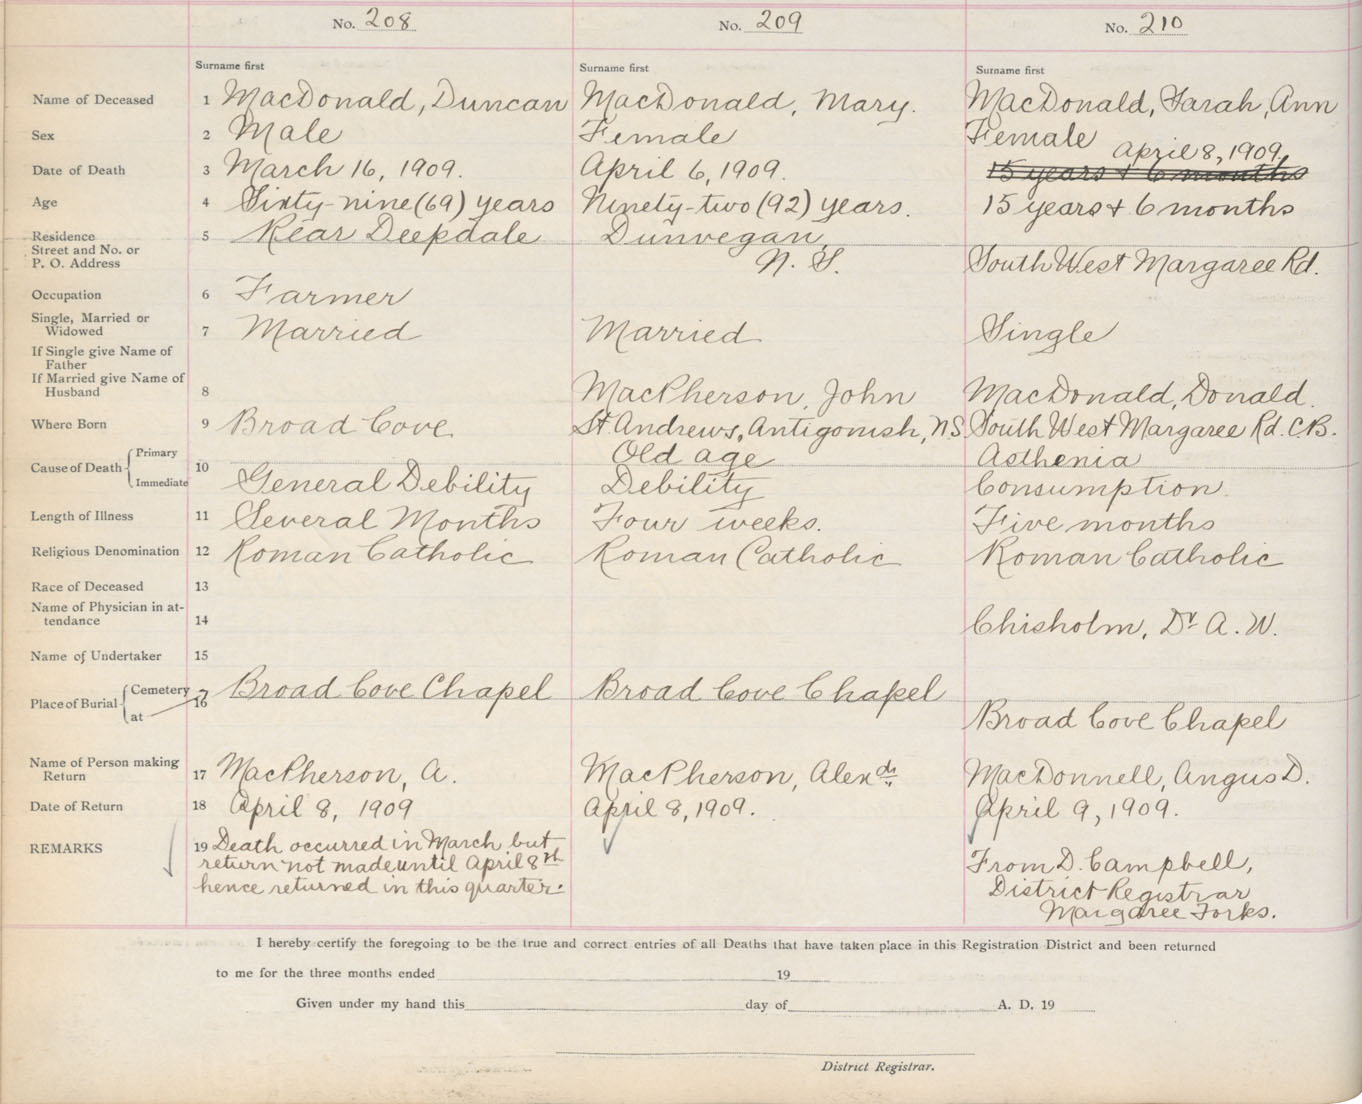 No. 208
No. 209
No. 210
Surname first
Surname first
Surname first
Name of Deceased 1 MacDonald, Duncan MacDonald, Mary. MacDonald, Sarah, Ann
Sex 2 Male Female Female
Date of Death 3 March 16, 1909. April 6, 1909. April 8, 1909.
15 years + 6 months
Age 4 Sixty-nine (69) years Ninety-two (92) years. 15 years + 6 months
Residence 5 Rear Deepdale Dunvegan,
Street and No. or
P. O. Address N. S. South West Margaree Rd.
Occupation 6 Farmer
Single, Married or
Widowed 7 Married Married Single
If Single give Name of
Father
If Married give Name of
Husband 8 MacPherson, John MacDonald, Donald.
Where Born 9 Broad Cove. St. Andrews, Antigonish, N.S. South West Margaree Rd. C.B.
Cause of Death Primary 10 Old age Asthenia
Immediate General Debility Debility Consumption.
Length of Illness 11 Several Months Four weeks. Five months
Religious Denomination 12 Roman Catholic Roman Catholic Roman Catholic
Race of Deceased 13
Name of Physician in at-
tendance 14 Chisholm, Dr A. W.
Name of Undertaker 15
Place of Burial Cemetery 16 Broad Cove Chapel Broad Cove Chapel
at Broad Cove Chapel
Name of Person making
Return 17 MacPherson, A. MacPherson, Alexdr MacDonnell, Angus D.
Date of Return 18 April 8, 1909 April 8, 1909. April 9, 1909.
REMARKS 19 Death occurred in March but
return not made until April 8th
hence returned in this quarter.
From D. Campbell,
District Registrar
Margaree Forks.
I hereby certify the foregoing to be the true and correct entries of all Deaths that have taken place in this Registration District and been returned
to me for the three months ended 19
Given under my hand this day of A. D. 19
District Registrar.